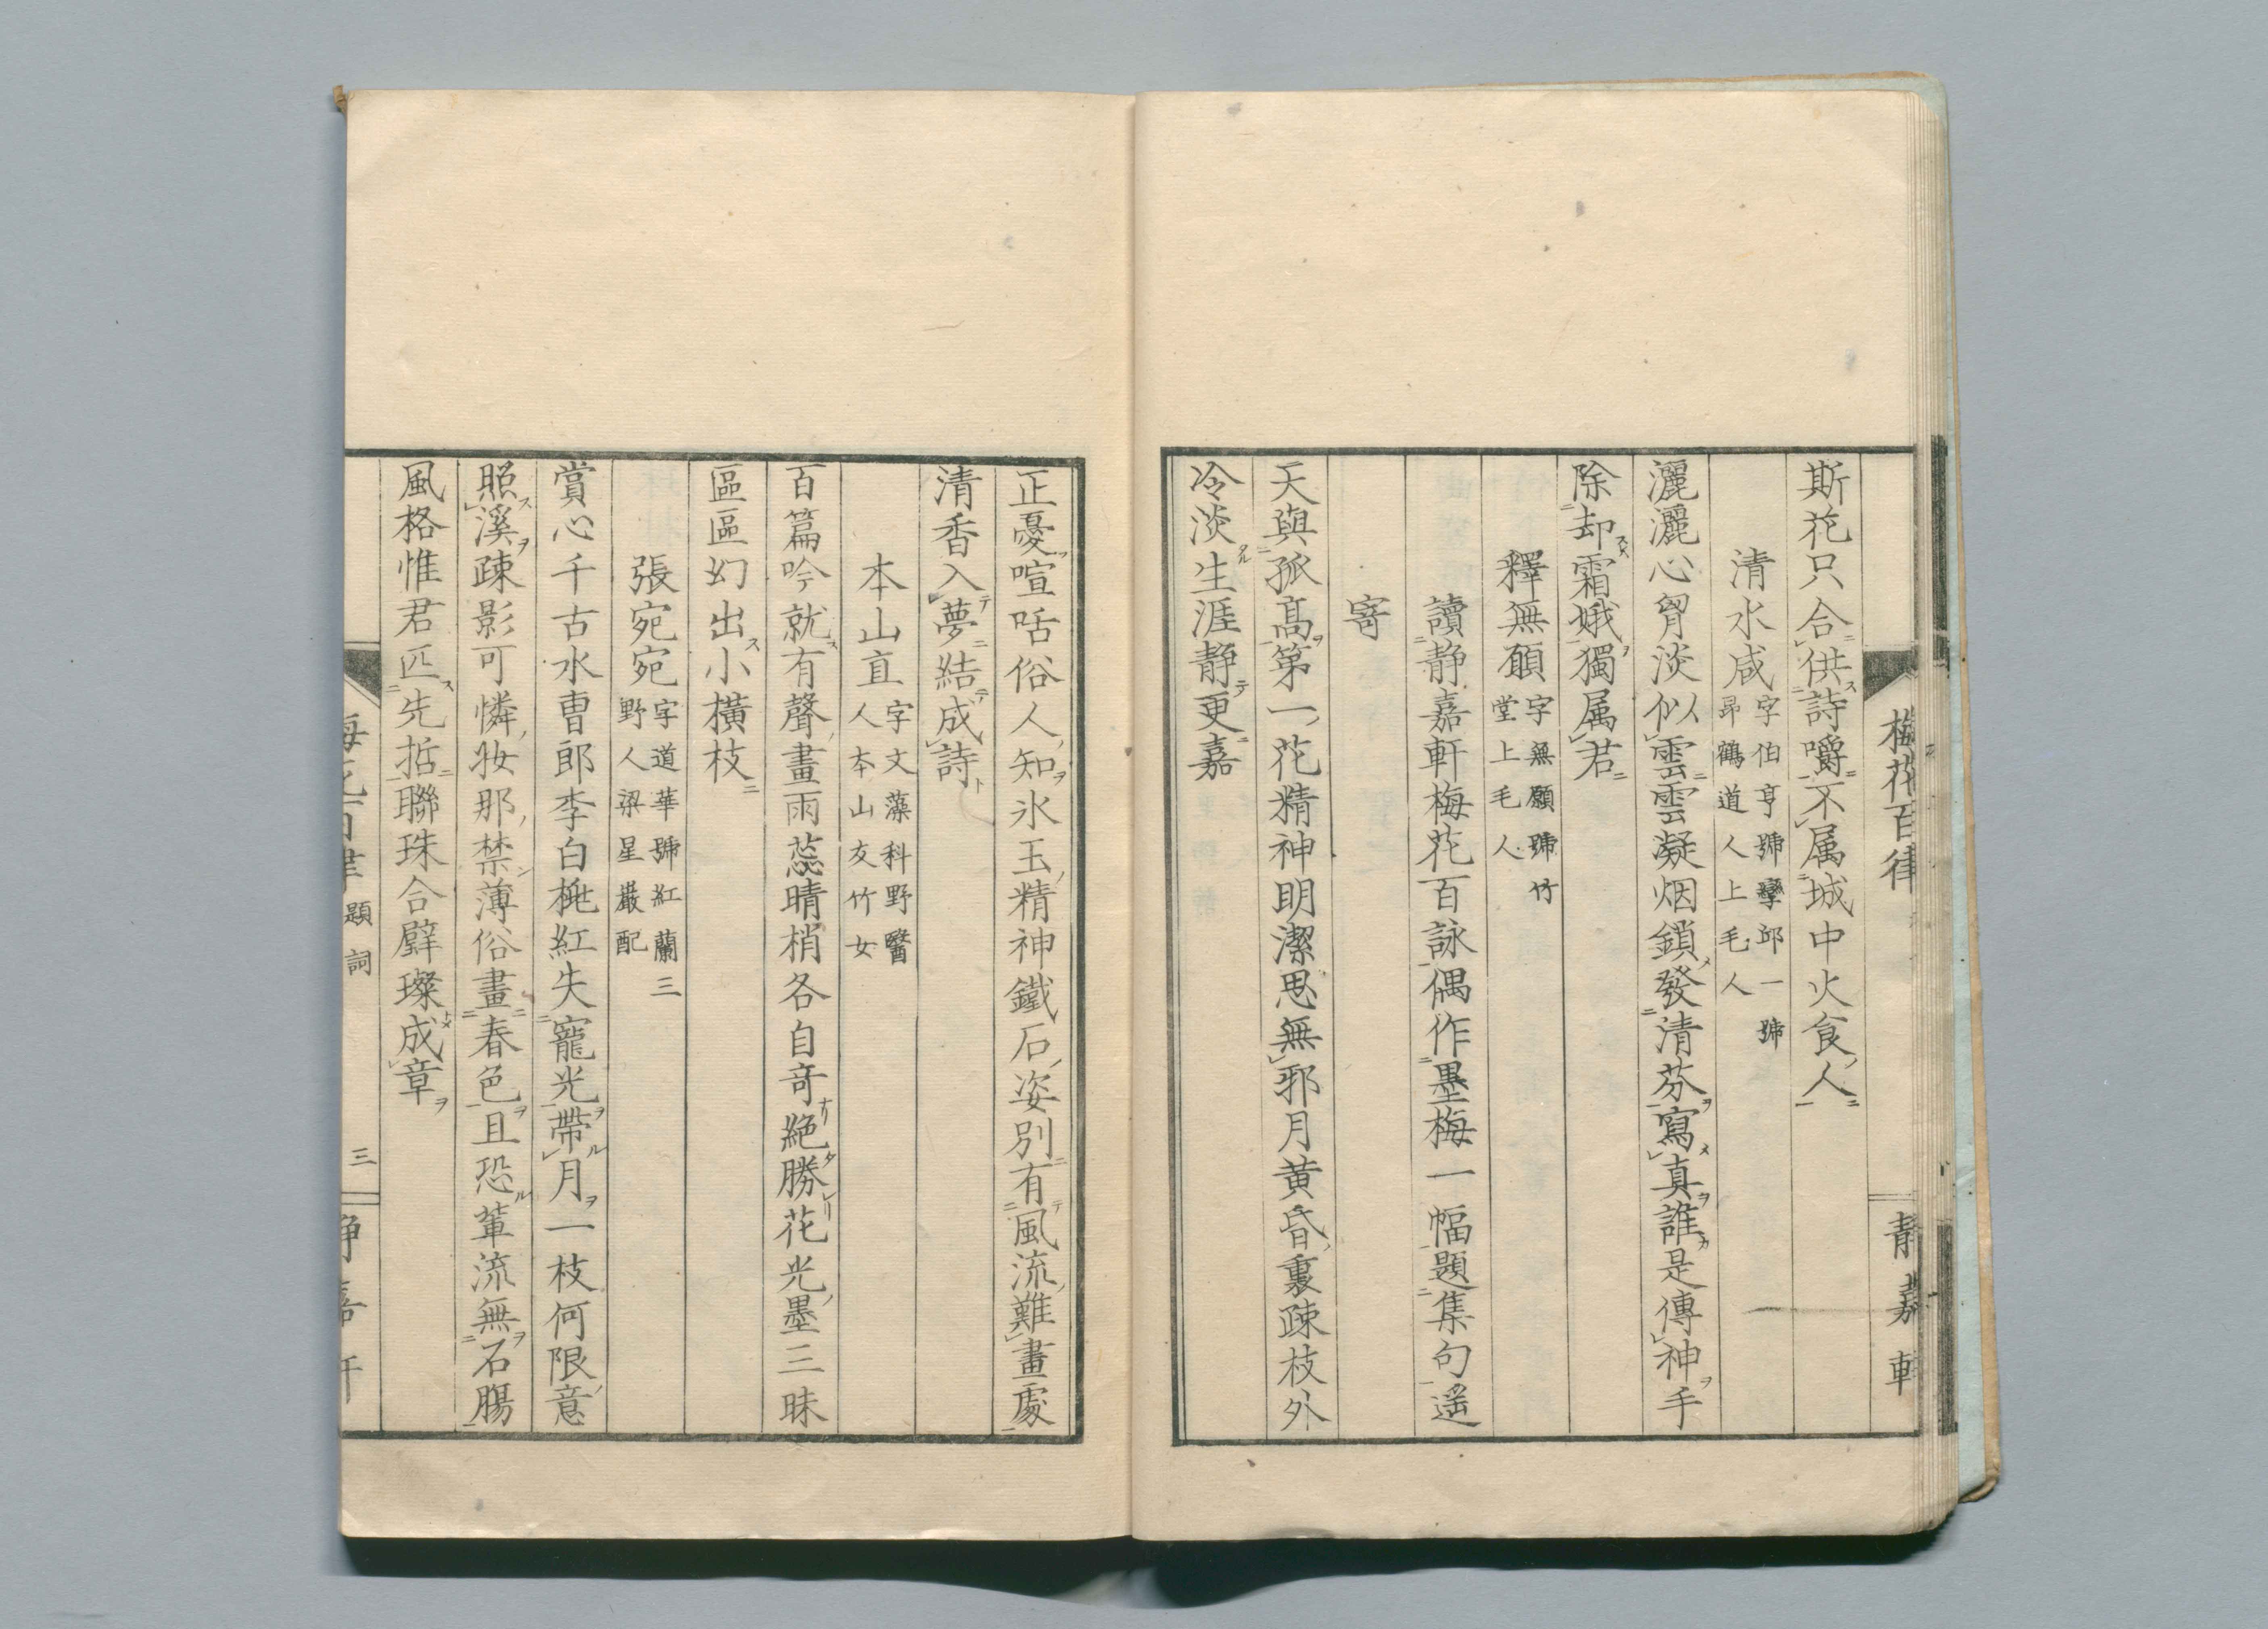 梅花百律
静嘉軒
斯花只合供詩嚼不属城中火食人
清水咸字伯亨號孿邱一號昴鶴道人上毛人
灑灑心胷淡似雲雲凝烟鎖發清芬寫真誰是傳神手
除却霜娥獨属君
釋無願字無願號竹堂上毛人
讀静嘉軒梅花百詠偶作墨梅一幅題集句遥
寄
天與孤髙第一花精神明潔思無邪月黄昏裏疎枝外
冷淡生涯静更嘉
正憂喧咶俗人知氷玉精神鐵石姿別有風流難畫處
清香入夢結成詩
本山直字文藻科野醫人本山友竹女
百篇吟就有聲畫雨蕊晴梢各自竒絶勝花光墨三昧
區區幻出小橫枝
張宛宛字道華號紅蘭三野人梁星巖配
賞心千古水曹郎李白桃紅失寵光帶月一枝何限意
照溪疎影可憐妝那禁薄俗畫春色且恐葷流無石膓
風格惟君匹先哲聯珠合璧璨成章
題詞
三